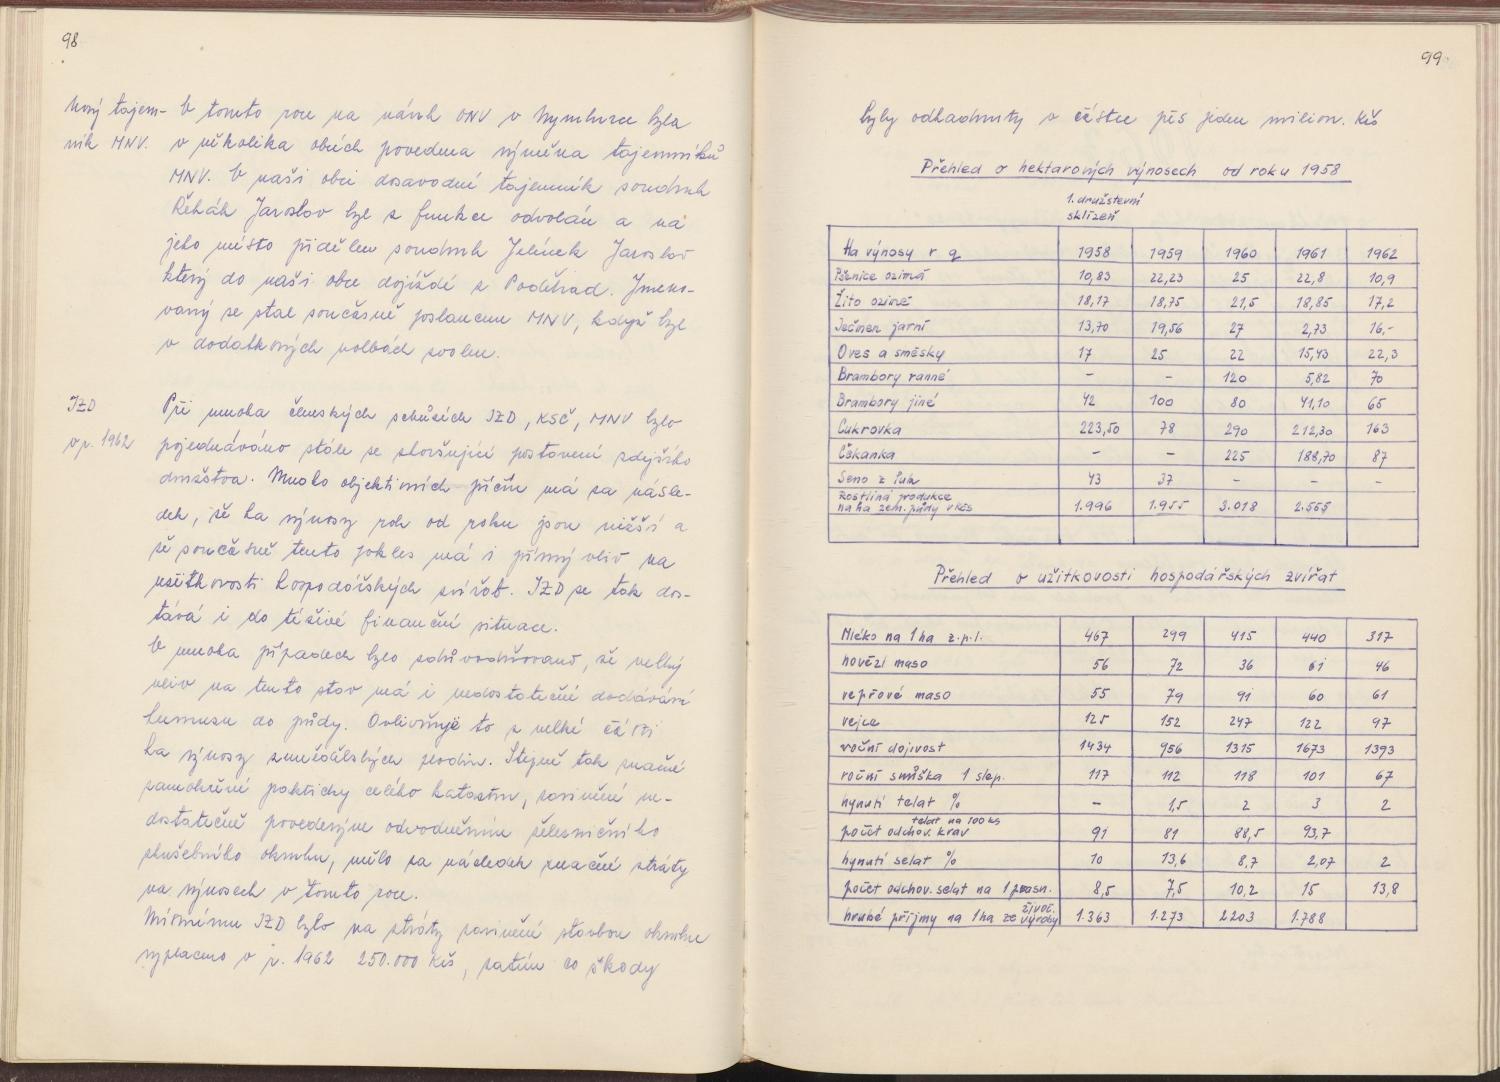 98
Nový tajem-
ník MNV.
V tomto roce na návrh ONV v Nymburce byla
v několika obcích provedena výměna tajemníků
MNV. V naší obci dosavadní tajemník soudruh
Řehák Jaroslav byl z funkce odvolán a na
jeho místo přidělen soudruh Jelínek Jaroslav
který do naši obce dojíždí z Poděbrad. Jmeno-
vaný se stal současně poslancem MNV, když byl
v dodatkových volbách zvolen.
JZD
v r. 1962
Při mnoha členských schůzích JZD, KSČ, MNV bylo
pojednáváno stále se zhoršující postavení zdejšího
družstva. Mnoho objektivních příčin má za násle-
dek, že ha výnosy rok od roku jsou nižší a
že současně tento pokles má i přímý vliv na
užitkovosti hospodářských zvířat. JZD se tak dos-
tává i do tíživé finanční situace.
V mnoha případech bylo zdůvodňováno, že velký
vliv na tento stav má i nedostatečné dodávání
humusu do půdy. Ovlivňuje to z velké části
ha výnosy zemědělských plodin. Stejně tak značné
zamokření prakticky celého katastru, zaviněné ne-
dostatečně provedeným odvodněním železničního
zkušebního okruhu, mělo za následek značné ztráty
na výnosech v tomto roce.
Místnímu JZD bylo na ztráty zaviněné stavbou okruhu
vyplaceno v r. 1962 250.000 Kčs, zatím co škody
99
byly odhadnuty v částce přes jeden milion. Kčs
Přehled o hektarových výnosech od roku 1958
1. družstevní
sklizeň
Ha výnosy v q 1958 1959 1960 1961 1962
Pšenice ozimá 10,83 22,23 25 22,8 10,9
Žito ozimé 18,17 18,75 21,5 18,85 17,2
Ječmen jarní 13,70 19,56 27 2,73 16.-
Oves a směsky 17 25 22 15,43 22,3
Brambory ranné - - 120 5,82 70
Brambory jiné 42 100 80 41,10 65
Cukrovka 223,50 78 290 212,30 163
Čekanka - - 225 188,70 87
Seno z luk 43 37 - - -
Rostliná produkce
na ha zem. půdy v Kčs 1.996 1.955 3.018 2.555
Přehled o užitkovosti hospodářských zvířat
Mléko na 1 ha z.p.l. 467 299 415 440 317
hovězí maso 56 72 36 61 46
vepřové maso 55 79 91 60 61
vejce 125 152 247 122 97
roční dojivost 1434 956 1315 1673 1393
roční snůška 1 slep. 117 112 118 101 67
hynutí telat % - 1,5 2 3 2
telat na 100 ks
počet odchov. krav 91 81 88,5 93,7
hynutí selat % 10 13,6 8,7 2,07 2
počet odchov. selat na 1 prasn. 8,5 7,5 10,2 15 13,8
hrubé příjmy na 1 ha ze živoč. výroby 1.363 1.273 2203 1.788